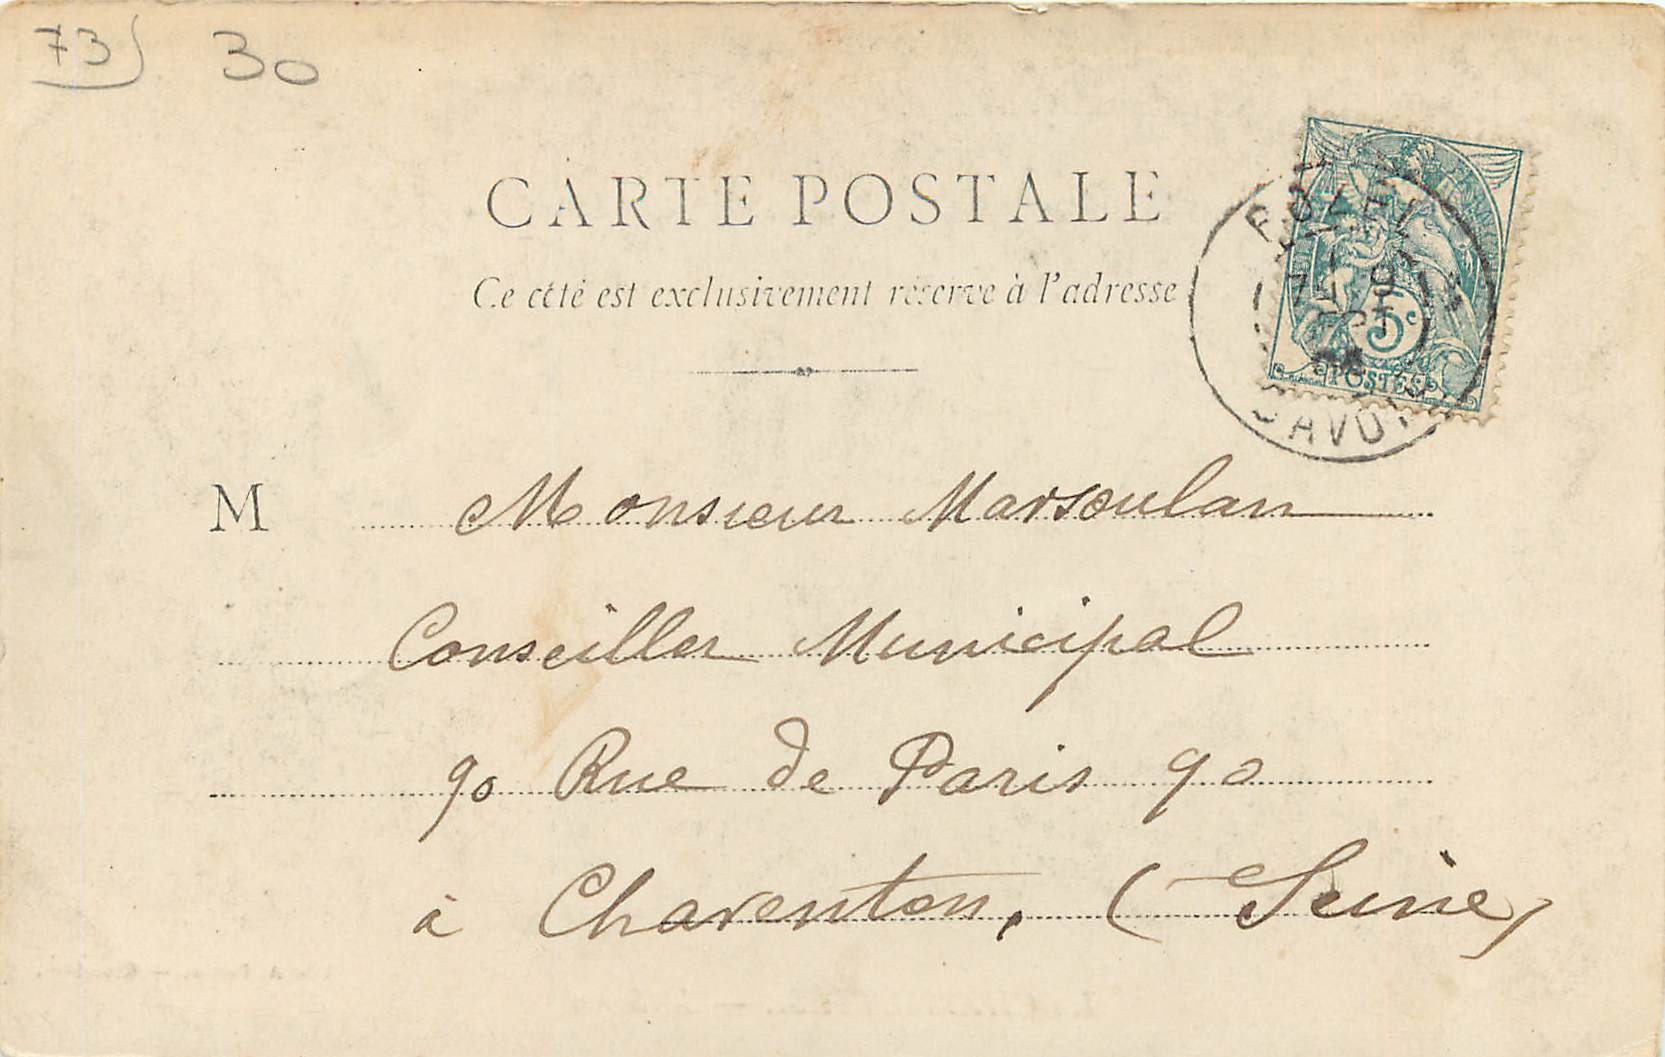 73 30
CARTE POSTALE
Ce côté est exclusivement réservé à l'adresse
5c
POSTES
SAVOIE
M Monsieur Marsoulan
Conseiller Municipal
90 Rue de Paris 90
à Charenton, (Seine)